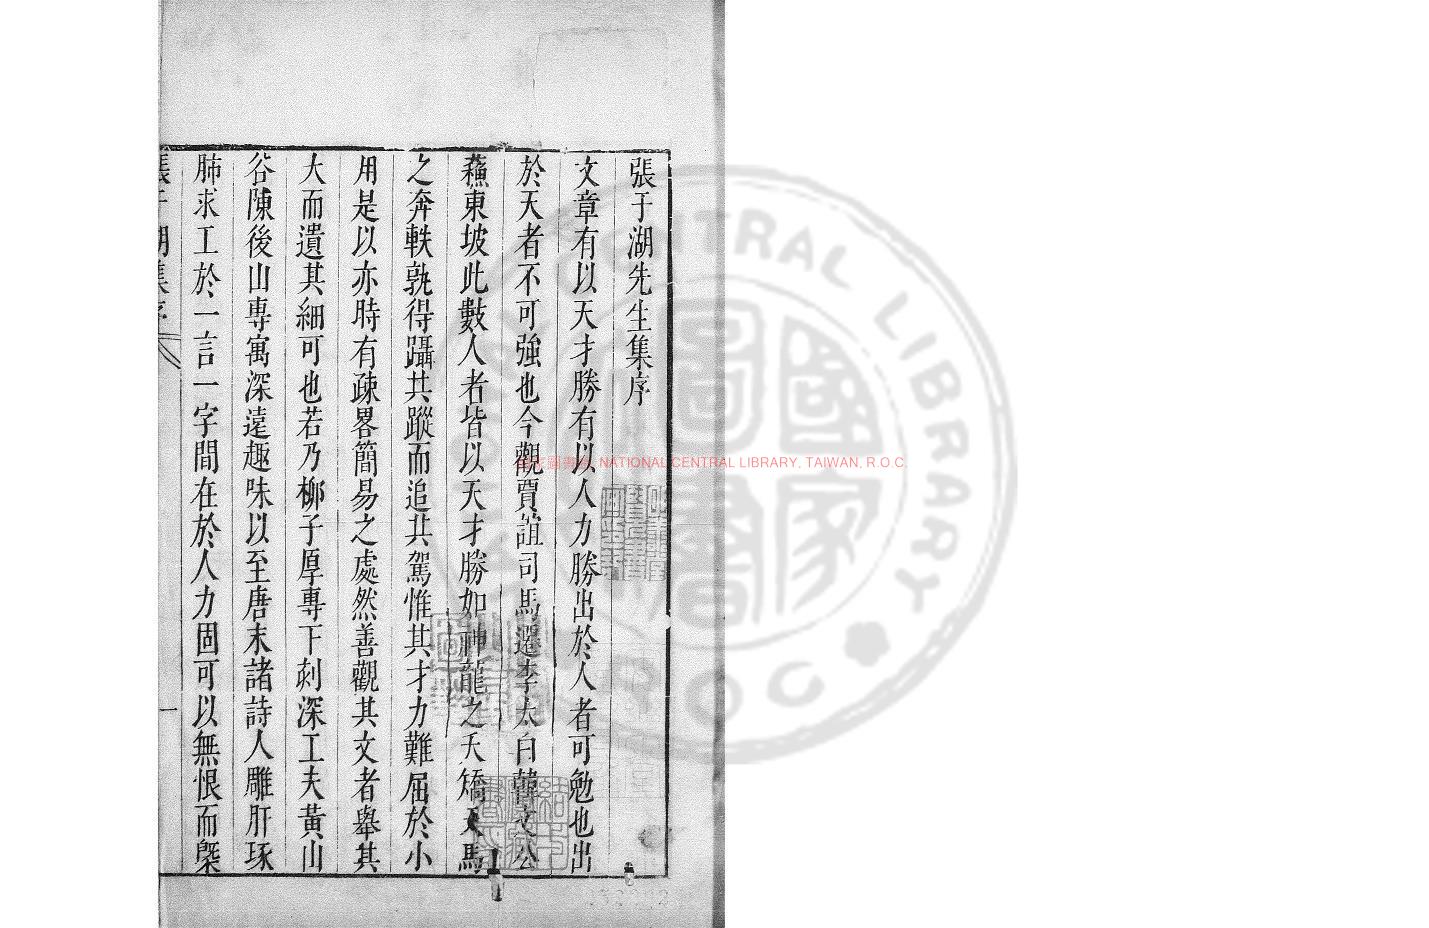 張于湖先生集序
文章有以天才勝有以人力勝出於人者可勉也出
於天者不可強也今觀賈誼司馬遷李太白韓文公
蘇東坡此數人者皆以天才勝如神龍之夭矯天馬
之奔軼孰得躡其蹤而追其駕惟其才力難屈於小
用是以亦時有疎畧簡易之處然善觀其文者舉其
大而遺其細可也若乃栁子厚專下刻深工夫黃山
谷陳後山專寓深遠趣味以至唐末諸詩人雕肝琢
肺求工於一言一字間在於人力固可以無恨而槩
張于湖集序
一
NATIONAL CENTRAL LIBRARY, TAIWAN, R.O.C.